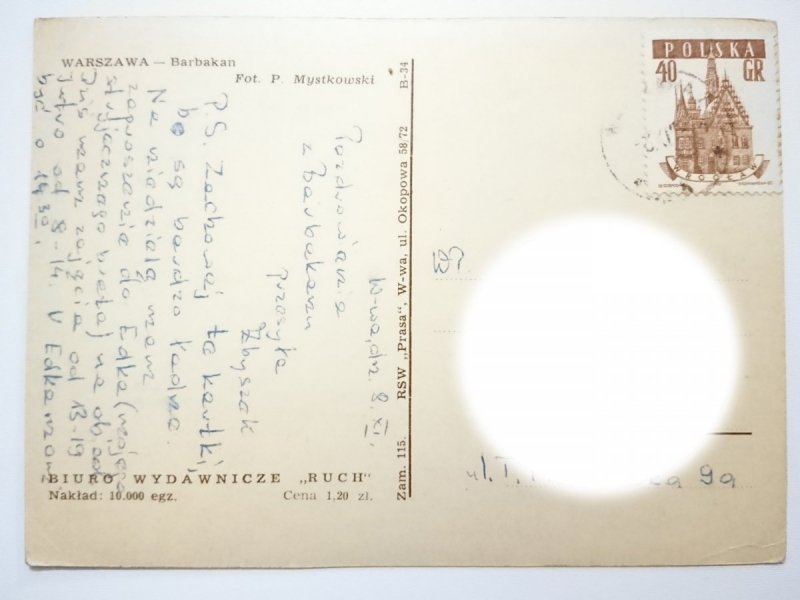 WARSZAWA — Barbakan
Fot. P. Mystkowski
W-wa, dz. 8.XI.
Pozdrowienia
z Barbakanu
przesyła
Zbyszek
P.S. Zachowaj te kartki,
bo są bardzo ładne.
Na niedzielę mam
zaproszenie do Edka (mojego
stryjecznego brata) na obiad
Dziś mam zajęcia od 13-19
jutro od 8-14. U Edka mam
być o 14 30.
BIURO WYDAWNICZE „RUCH"
Nakład: 10.000 egz.
Cena 1,20 zł.
Zam. 115. RSW „Prasa", W-wa, ul. Okopowa 58/72 B-34
POLSKA
40 GR
WROCŁAW
WP
ul. T.
ka 9a